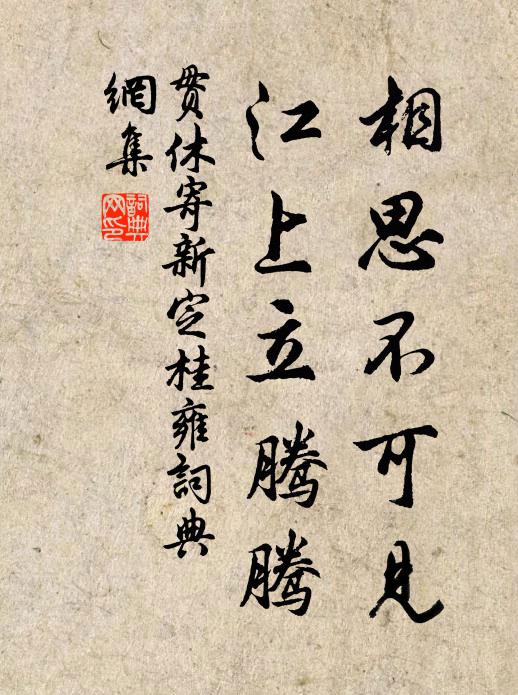 相思不可见
江上立腾腾
贯休寄新定桂雍詞典
網集
詞典网印